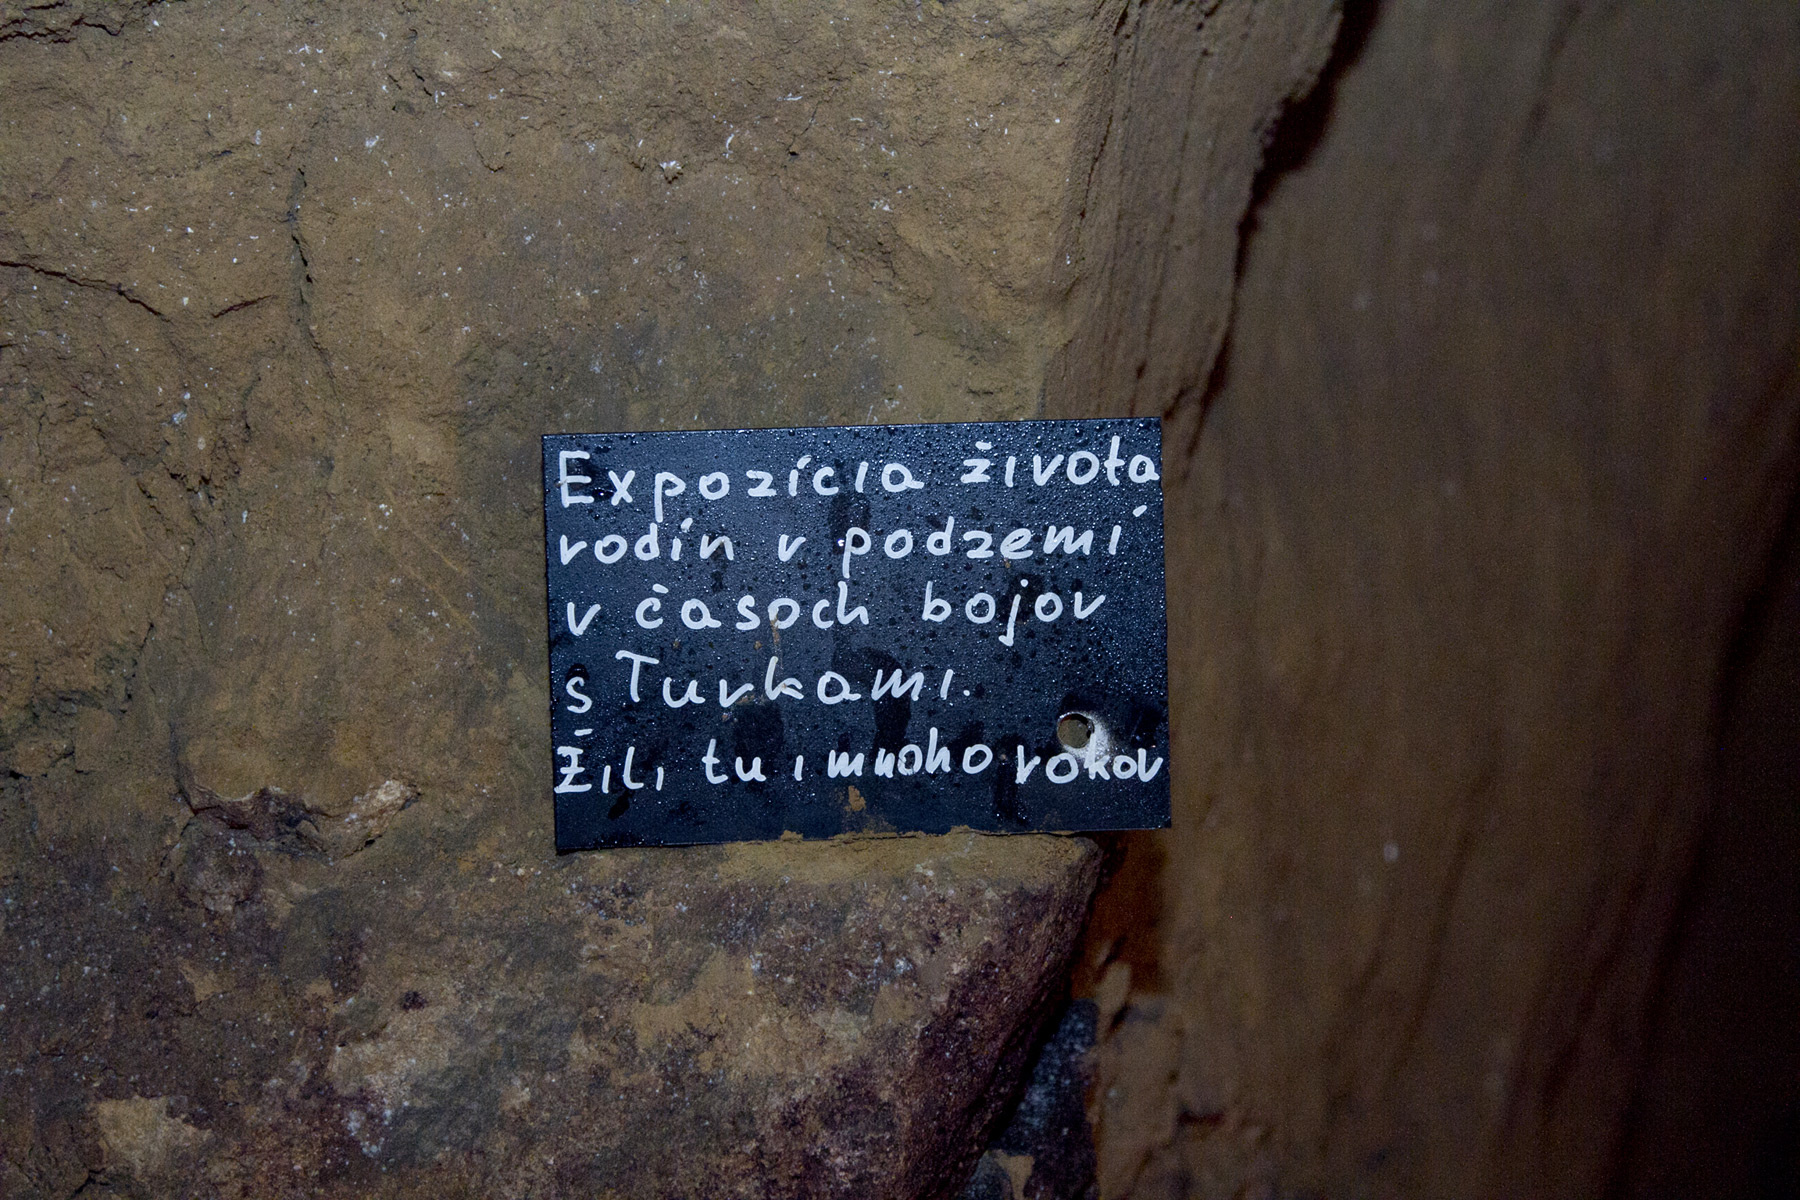 Expozícia života
rodín v podzemí
v časoch bojov
s Turkami.
Žili tu i mnoho rokov